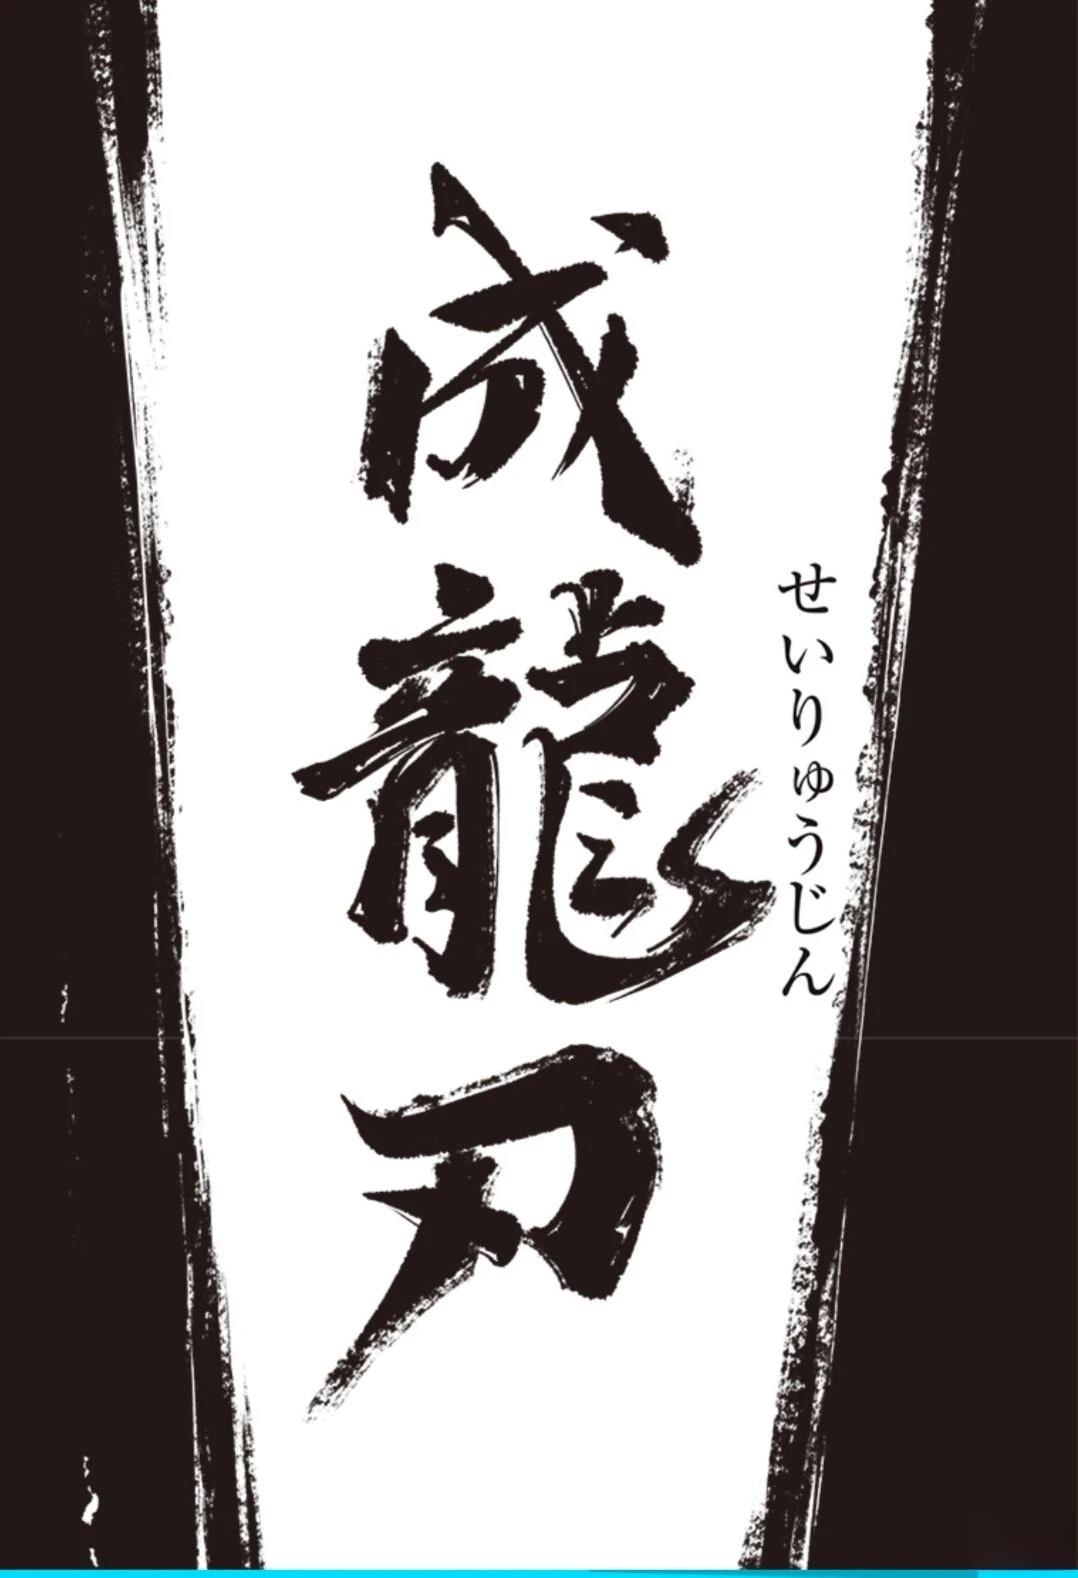 成龍刃
せいりゅうじん